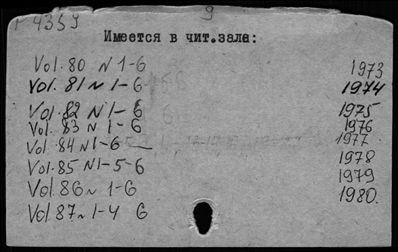 Г 4359 9
Имеется в чит.зале:
Vol. 80 N 1-6 1973
Vol. 81 N 1-6 1974
Vol. 82 N 1-6 1975
Vol. 83 N 1-6 1976
Vol. 84 N 1-6 1977
Vol. 85 N 1-5-6 1978
Vol. 86 N 1-6 1979
Vol. 87 N 1-4 6 1980.